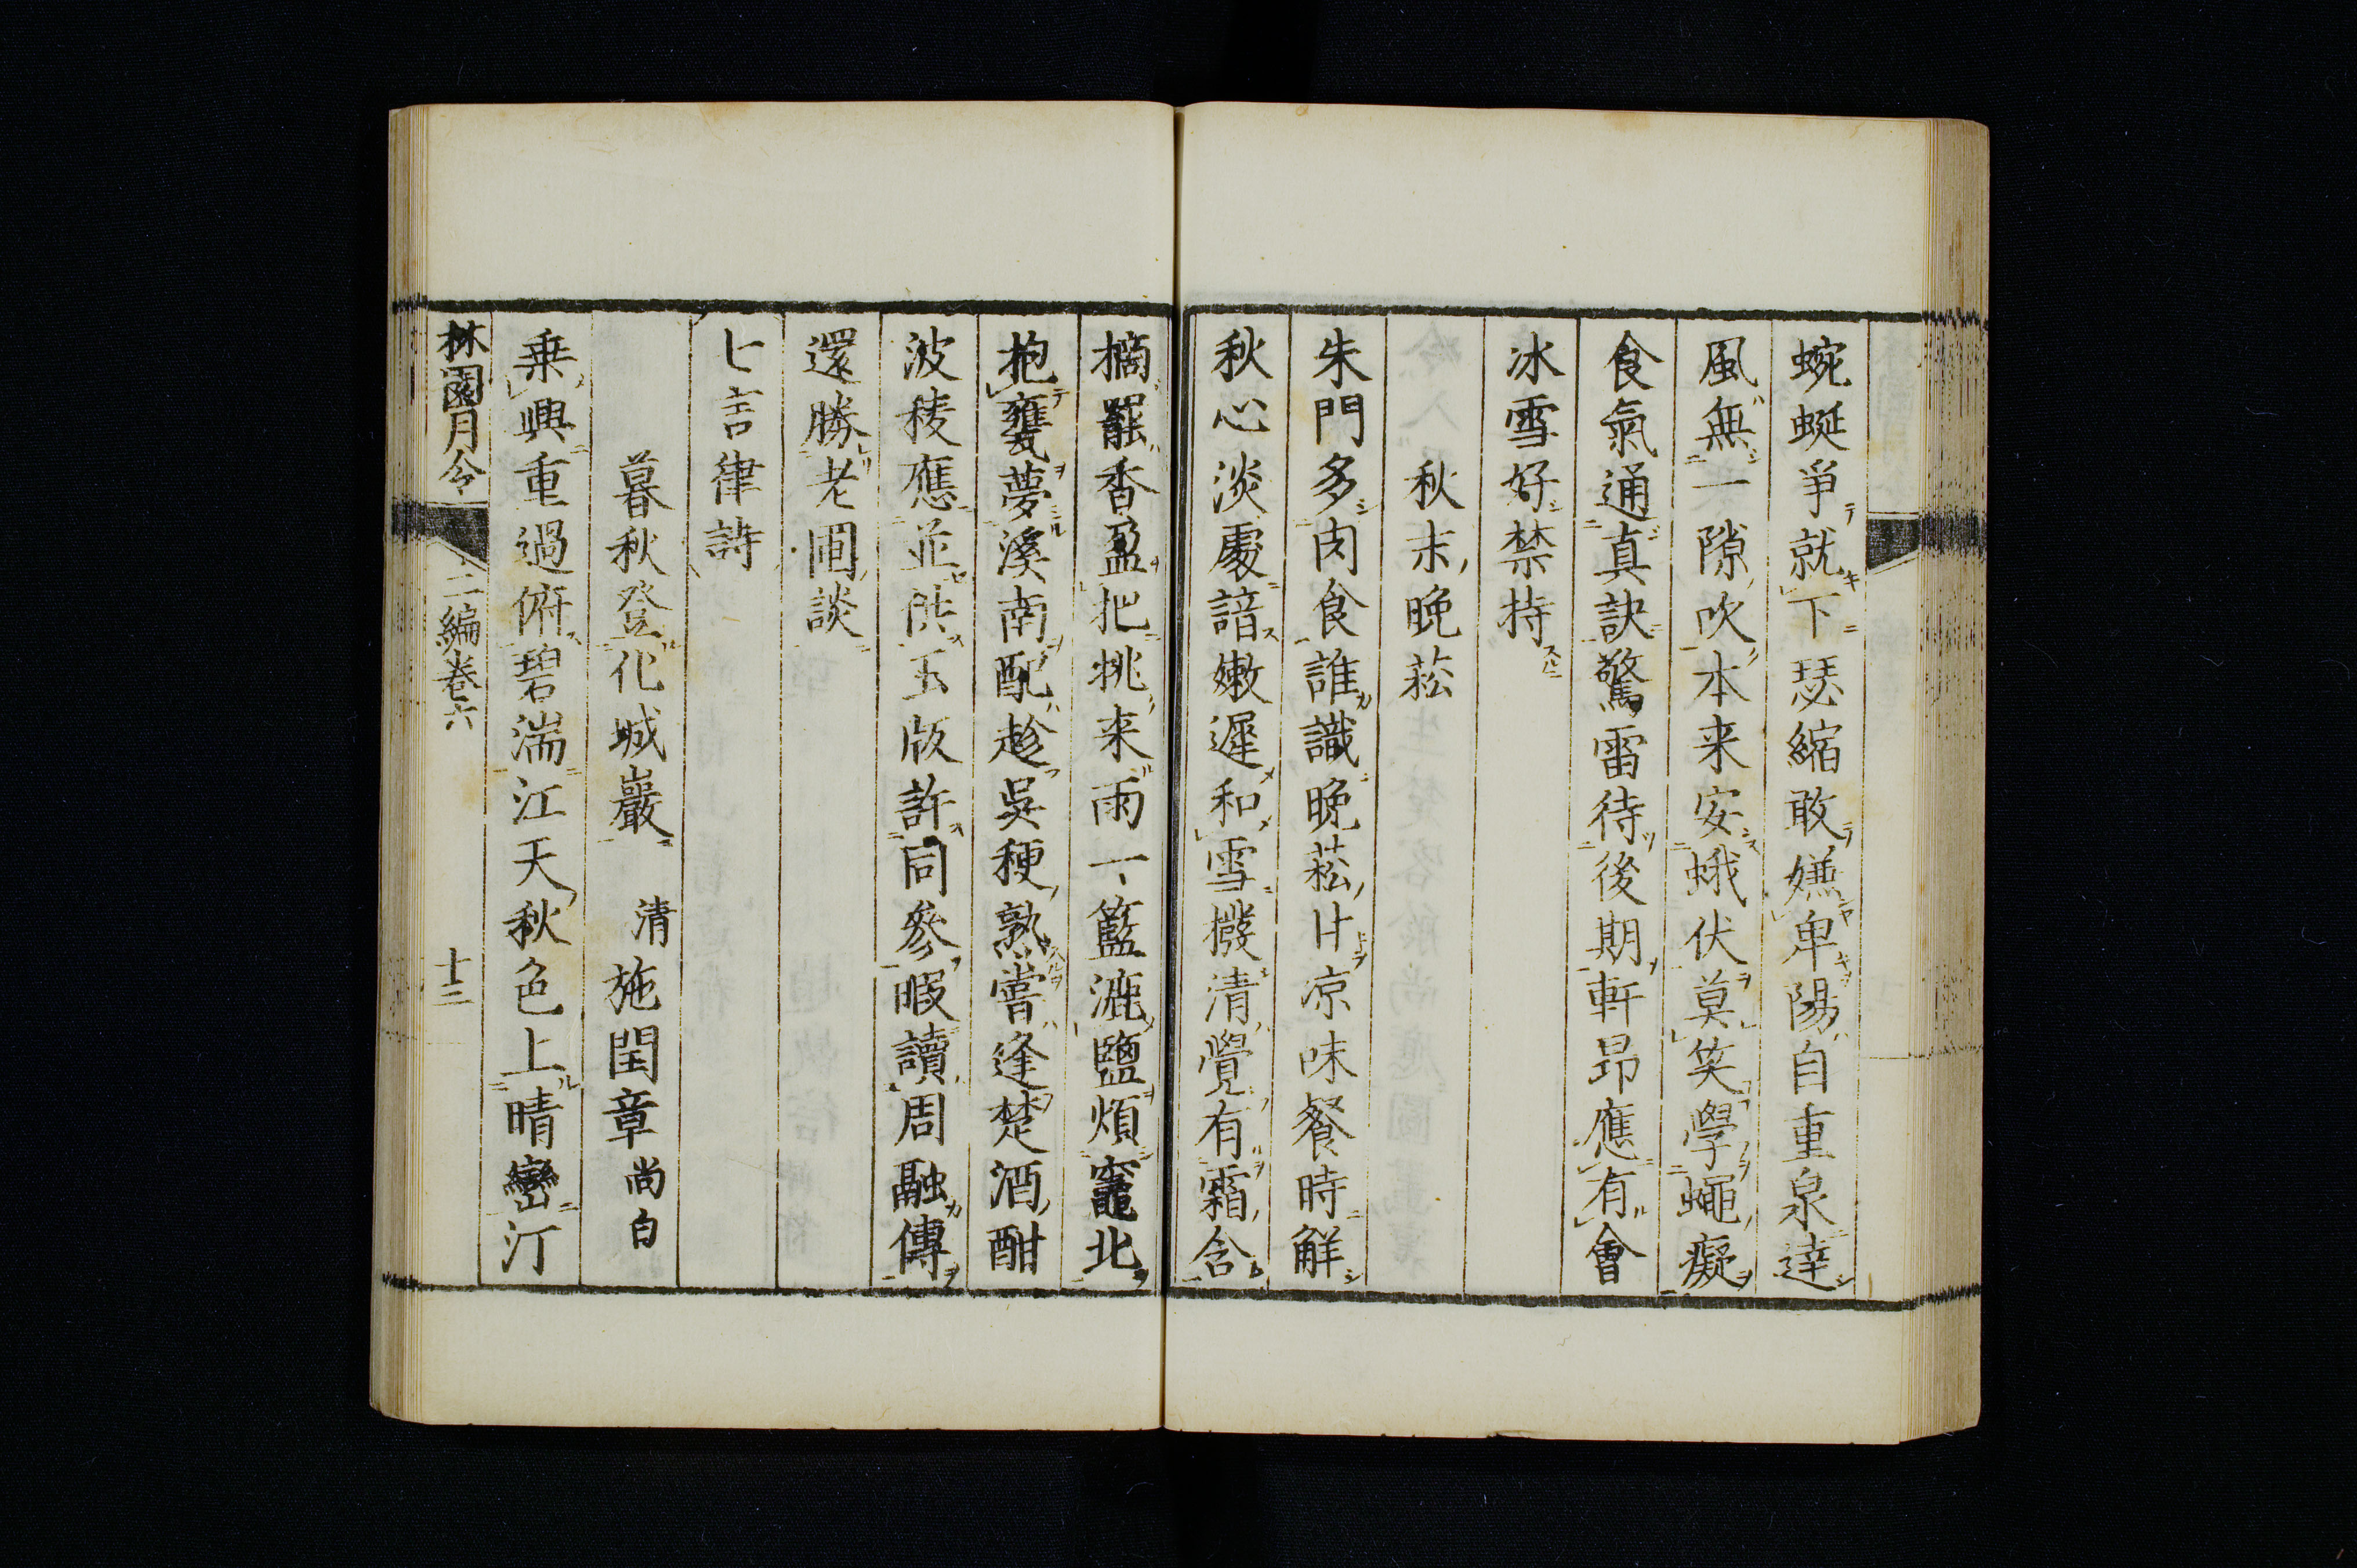 蜿蜒爭就下瑟縮敢嫌卑陽自重泉達
風無一隙吹本来安蛾伏莫笑學蠅癡
食氣通真訣驚雷待後期軒昂應有會
冰雪好禁持
秋末晩菘
朱門多肉食誰識晩菘甘凉味餐時鮮
秋心淡處諳嫩遲和雪撥清覺有霜含
摘罷香盈把挑来雨一籃漉鹽煩竈北
抱甕夢溪南配趁吳粳熟嘗逢楚酒酣
波稜應並供玉版許同參暇讀周融傳
還勝老圃談
七言律詩
暮秋登化城巖 清施閏章尚白
乗興重過俯碧湍江天秋色上晴巒汀
林園月令 二編卷六 十三